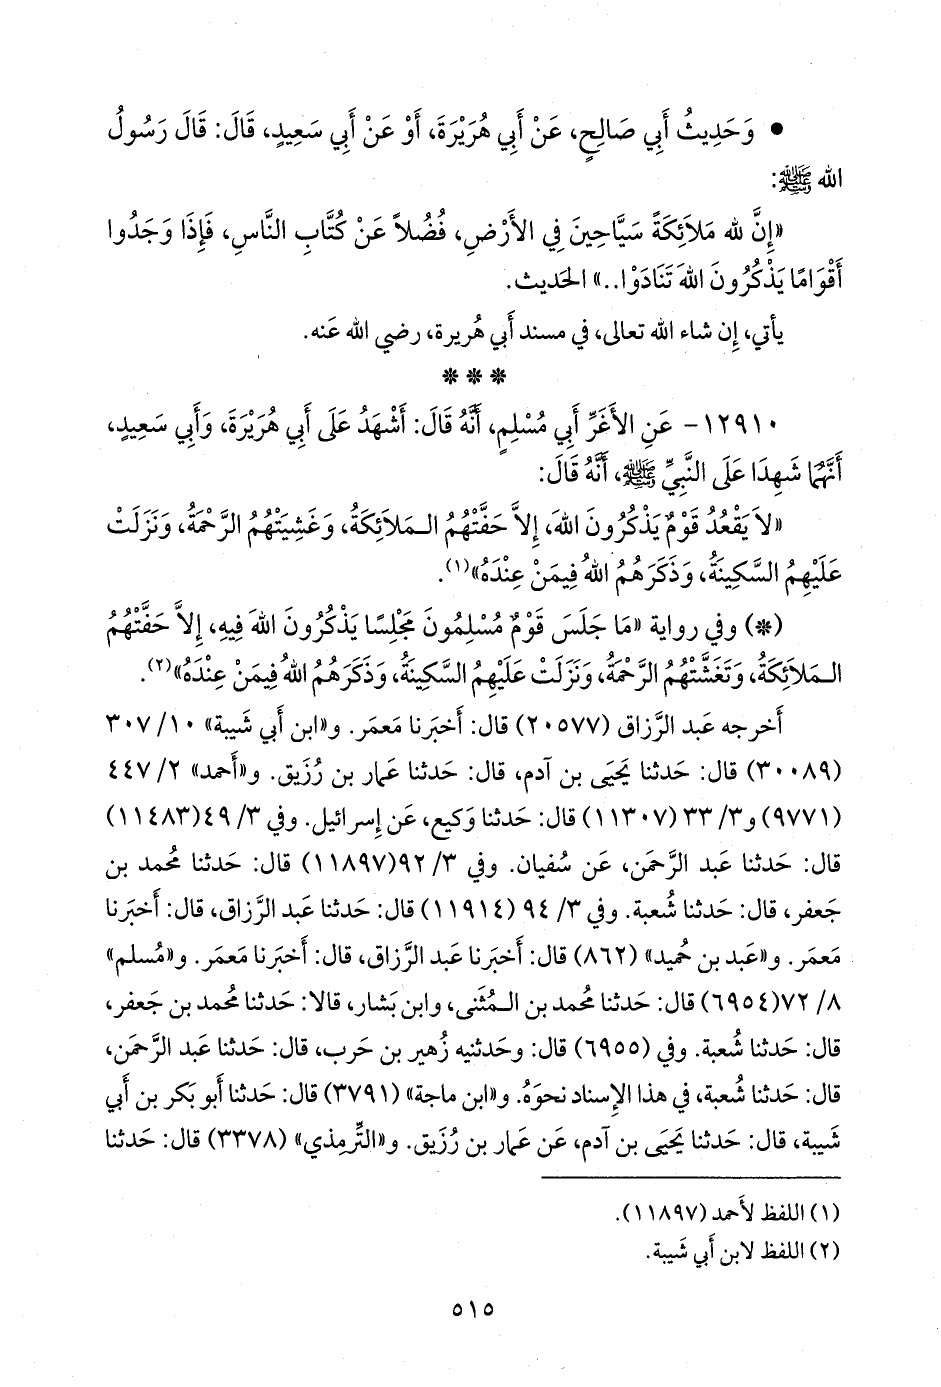 • وَحَدِيثُ أَبِي صَالِحٍ، عَنْ أَبِي هُرَيْرَةَ، أَوْ عَنْ أَبِي سَعِيدٍ، قَالَ: قَالَ رَسُولُ
الله ﷺ:
«إِنَّ لله مَلاَئِكَةً سَيَّاحِينَ فِي الأَرْضِ، فُضُلاً عَنْ كُتَّابِ النَّاسِ، فَإِذَا وَجَدُوا
أَقْوَامًا يَذْكُرُونَ اللهَ تَنَادَوْا..» الحَديث.
يأتي، إِن شاء الله تعالى، في مسند أَبي هُريرة، رضي الله عَنه.
* * *
١٢٩١٠- عَنِ الأَغَرِّ أَبِي مُسْلِمٍ، أَنَّهُ قَالَ: أَشْهَدُ عَلَى أَبِي هُرَيْرَةَ، وَأَبِي سَعِيدٍ،
أَنَّهُمَا شَهِدَا عَلَى النَّبِيِّ ﷺ، أَنَّهُ قَالَ:
«لاَ يَقْعُدُ قَوْمٌ يَذْكُرُونَ اللهَ، إِلاَّ حَفَّتْهُمُ الـمَلاَئِكَةُ، وَغَشِيَتْهُمُ الرَّحْمَةُ، وَنَزَلَتْ
عَلَيْهِمُ السَّكِينَةُ، وَذَكَرَهُمُ اللهُ فِيمَنْ عِنْدَهُ»(١).
(*) وفي رواية «مَا جَلَسَ قَوْمٌ مُسْلِمُونَ مَجْلِسًا يَذْكُرُونَ اللهَ فِيهِ، إِلاَّ حَفَّتْهُمُ
الـمَلاَئِكَةُ، وَتَغَشَّتْهُمُ الرَّحْمَةُ، وَنَزَلَتْ عَلَيْهِمُ السَّكِينَةُ، وَذَكَرَهُمُ اللهُ فِيمَنْ عِنْدَهُ»(٢).
أَخرجه عَبد الرَّزاق (٢٠٥٧٧) قال: أَخبَرنا مَعمَر. و«ابن أَبي شَيبة» ١٠/ ٣٠٧
(٣٠٠٨٩) قال: حَدثنا يَحيَى بن آدم، قال: حَدثنا عَمار بن رُزَيق. و«أَحمد» ٢/ ٤٤٧
(٩٧٧١) و٣/ ٣٣ (١١٣٠٧) قال: حَدثنا وَكيع، عَن إِسرائيل. وفي ٣/ ٤٩(١١٤٨٣)
قال: حَدثنا عَبد الرَّحمَن، عَن سُفيان. وفي ٣/ ٩٢(١١٨٩٧) قال: حَدثنا مُحمد بن
جَعفر، قال: حَدثنا شُعبة. وفي ٣/ ٩٤ (١١٩١٤) قال: حَدثنا عَبد الرَّزاق، قال: أَخبَرنا
مَعمَر. و«عَبد بن حُميد» (٨٦٢) قال: أَخبَرنا عَبد الرَّزاق، قال: أَخبَرنا مَعمَر. و«مُسلم»
٨/ ٧٢(٦٩٥٤) قال: حَدثنا مُحمد بن الـمُثَنى، وابن بَشار، قالا: حَدثنا مُحمد بن جَعفر،
قال: حَدثنا شُعبة. وفي (٦٩٥٥) قال: وحَدثنيه زُهير بن حَرب، قال: حَدثنا عَبد الرَّحمَن،
قال: حَدثنا شُعبة، في هذا الإِسناد نحوَهُ. و«ابن ماجة» (٣٧٩١) قال: حَدثنا أَبو بَكر بن أَبي
شَيبة، قال: حَدثنا يَحيَى بن آدم، عَن عَمار بن رُزَيق. و«التِّرمِذي» (٣٣٧٨) قال: حَدثنا
(١) اللفظ لأَحمد (١١٨٩٧).
(٢) اللفظ لابن أَبي شَيبة.
٥١٥